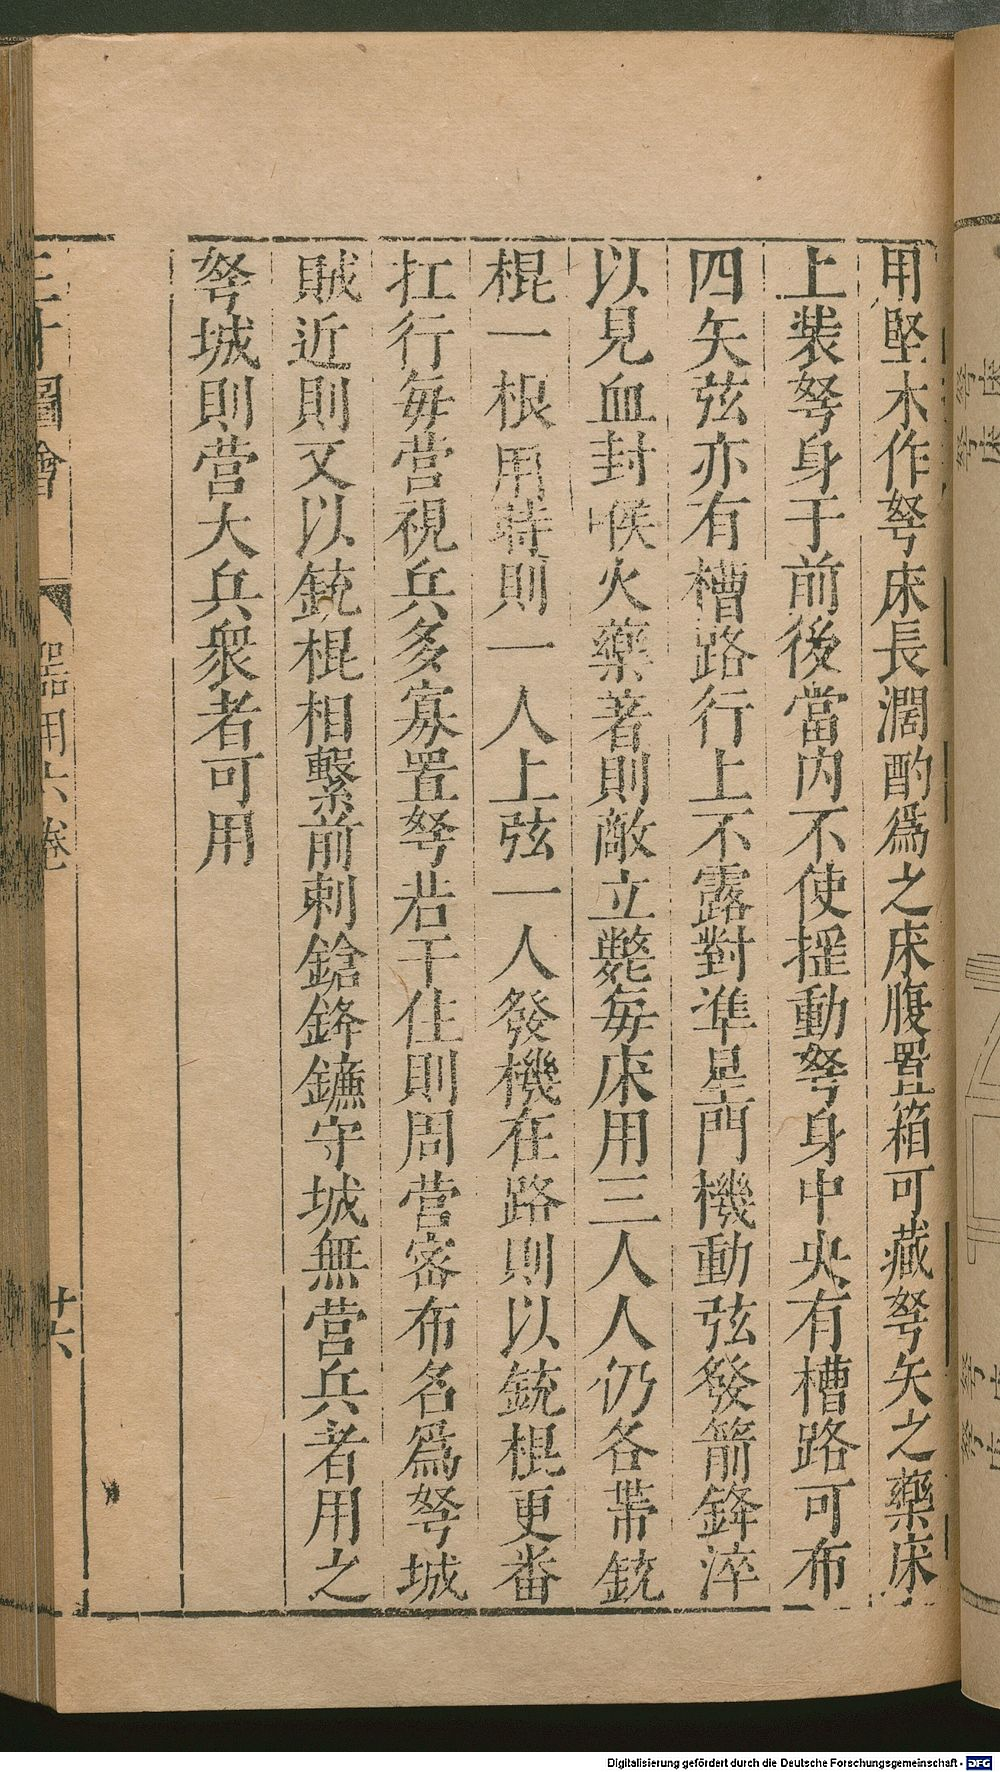 用堅木作弩床長濶酌爲之床腹置箱可藏弩矢之藥床
上裝弩身于前後當內不使揺動弩身中央有槽路可布
四矢弦亦有槽路行上不露對準星門機動弦發箭鋒淬
以見血封喉火藥著則敵立斃每床用三人人仍各帶銃
棍一根用時則一人上弦一人發機在路則以銃棍更番
扛行每營視兵多寡置弩若干住則周營密布名爲弩城
賊近則又以銃棍相繫前刺鎗鋒鐮守城無營兵者用之
弩城則營大兵衆者可用
三才圖會
器用六卷
十六
Digitalisierung gefördert durch die Deutsche Forschungsgemeinschaft - DFG